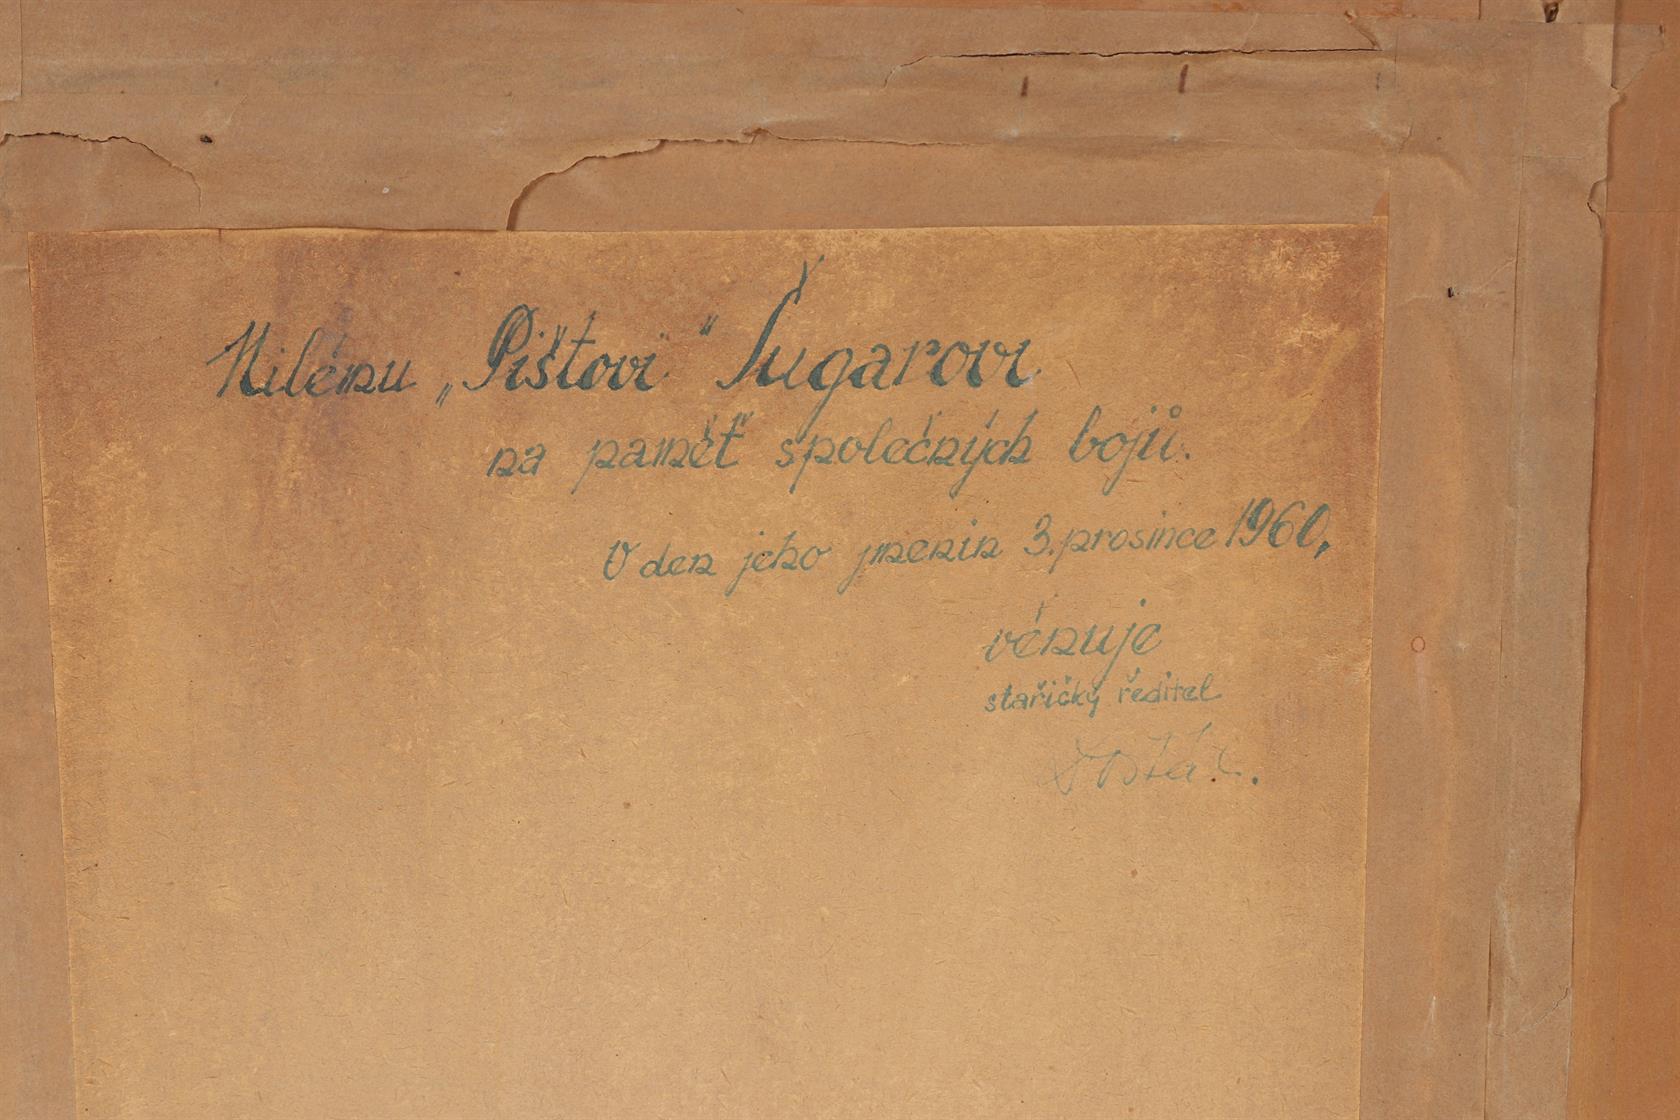 Milému „Pištovi" Šugarovi
na paměť společných bojů.
V den jeho jmenin 3. prosince 1960,
věnuje
stařičký ředitel